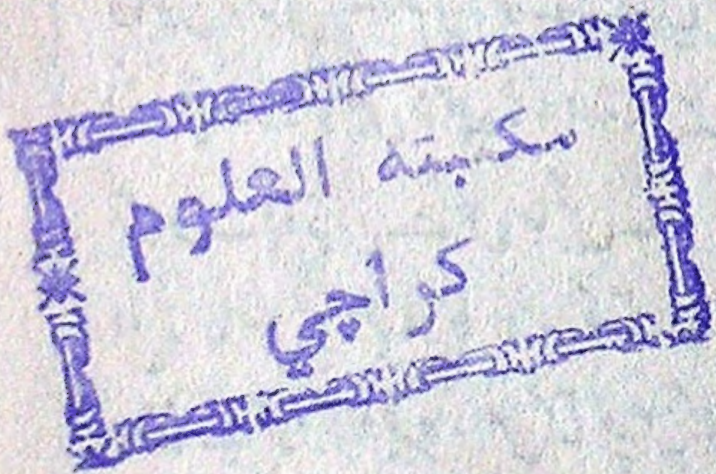 مکبتہ العلوم
کراچي